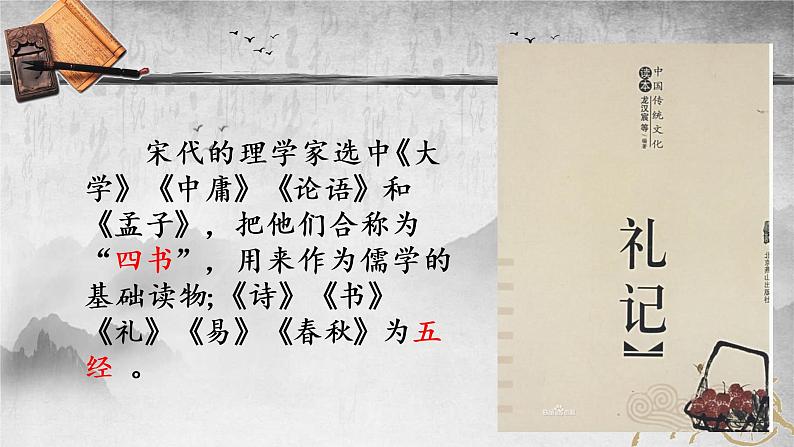 宋代的理学家选中《大
学》《中庸》《论语》和
《孟子》，把他们合称为
“四书”，用来作为儒学的
基础读物;《诗》《书》
《礼》《易》《春秋》为五
经 。
中国传统文化
读本
龙汉宸 等/编著
礼记
北京燕山出版社